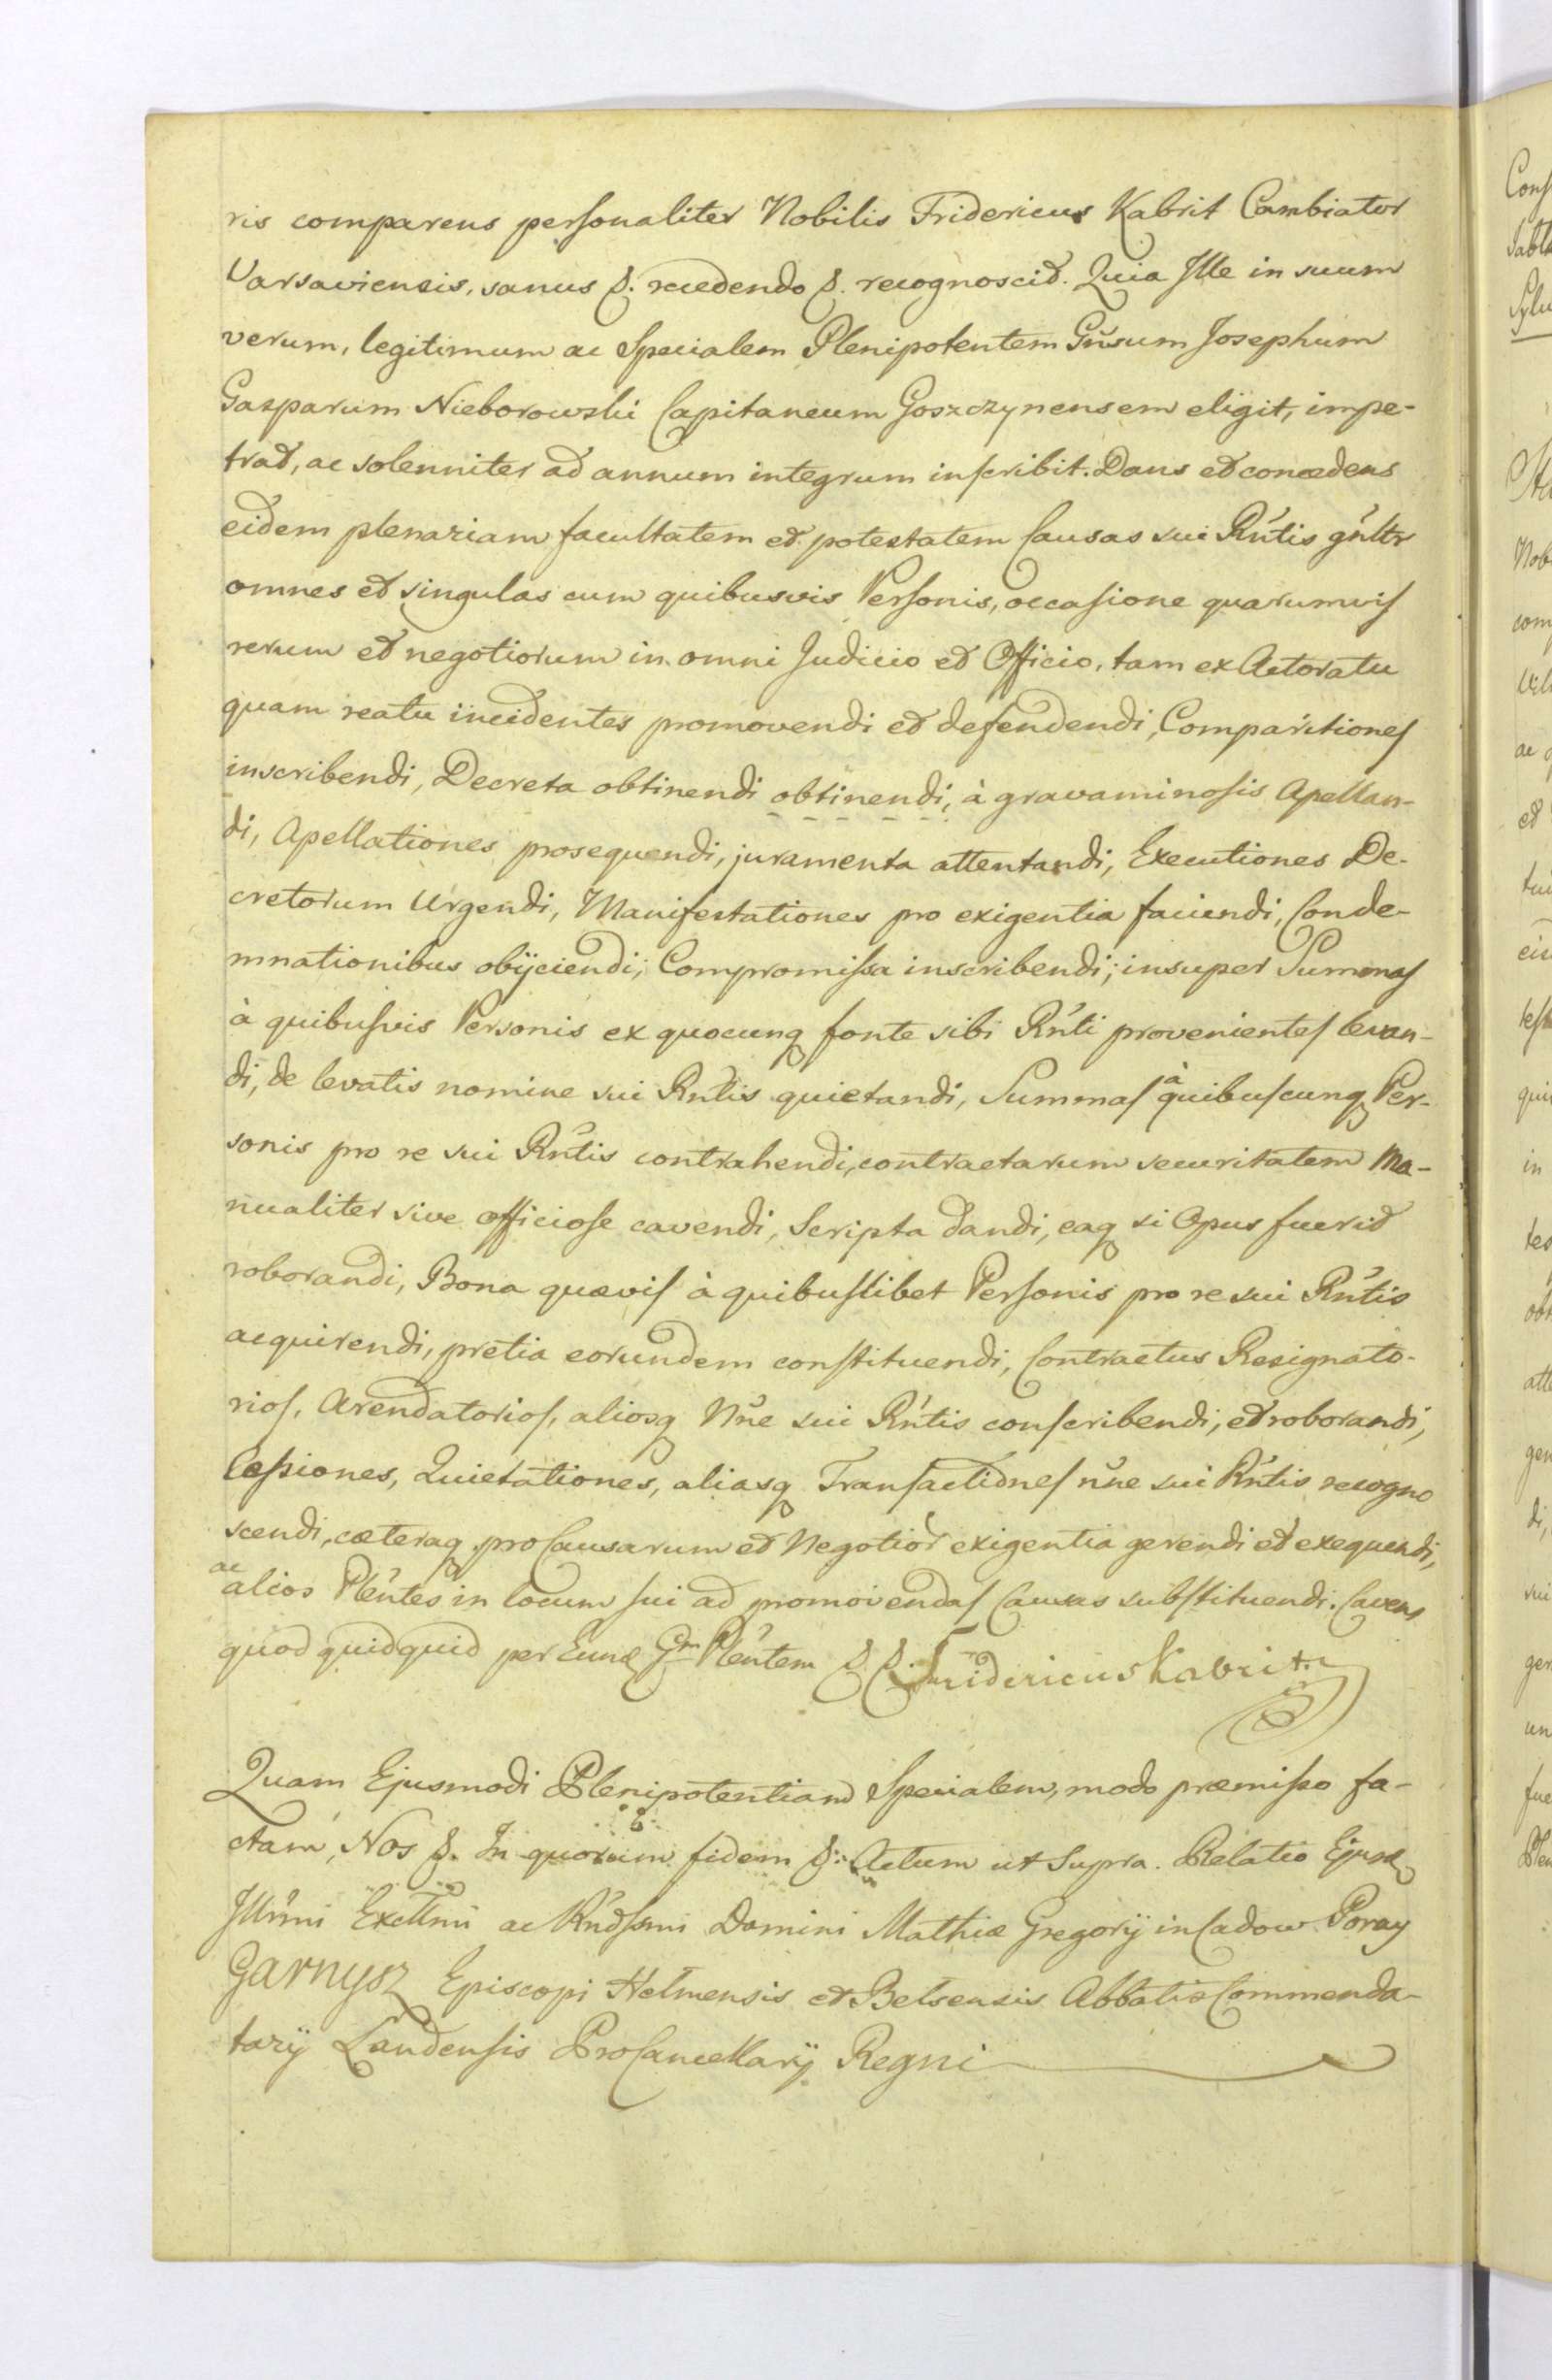 ris comparens personaliter Nobilis Fridericus Kabrit Cambiator
Varsaviensis, sanus &. recedendo &. recognoscit. Quia Ille in suum
verum, legitimum ac Specialem Plenipotentem Gñsum Josephum
Gasparum Nieborowski Capitaneum Goszczynensem eligit, impe-
trat, ac solenniter ad annum integrum inscribit. Dans et concedens
eidem plenariam facultatem et potestatem Causas sui Rñtis gñltr
omnes et singulas cum quibusvis Personis, occasione quarumvis
rerum et negotiorum in omni Judicio et Officio, tam ex Actoratu
quam reatu incidentes promovendi et defendendi, Comparitiones
inscribendi, Decreta obtinendi obtinendi, à gravaminosis Apellan-
di, Apellationes prosequendi, juramenta attentandi, Executiones De-
cretorum Urgendi, Manifestationes pro exigentia faciendi, Conde-
mnationibus obijciendi; Compromissa inscribendi; insuper Summas
à quibusvis Personis ex quocunq fonte sibi Rñti provenientes levan-
di, de levatis nomine sui Rñtis quietandi, Summas à quibuscunq Per-
sonis pro re sui Rñtis contrahendi, contractarum securitatem Ma-
nualiter sive officiose cavendi, Scripta dandi, eaq si Opus fuerit
roborandi, Bona quævis à quibuslibet Personis pro re sui Rñtis
acquirendi, pretia eorundem constituendi, Contractus Resignato-
rios, Arendatorios, aliosq Nñe sui Rñtis conscribendi, et roborandi,
Cessiones, Quietationes, aliasq Transactiones nñe sui Rñtis recogno
scendi, cæteraq pro Causarum et Negotior exigentia gerendi et exequendi,
ac alios Plentes in locum sui ad promovendas Causas substituendi. Cavens
quod quidquid per Eund Gm Plentem &. &. Fridericus Kabrit
Quam Ejusmodi Plenipotentiam Specialem, modo præmisso fa-
ctam, Nos &. In quorum fidem &: Actum ut Supra. Relatio Ejusd
Illrmi Excllmi ac Rndssmi Domini Mathiæ Gregorij in Cadow Poray
Garnysz Episcopi Helmensis et Belsensis Abbatis Commenda-
tarij Landensis ProCancellarij Regni